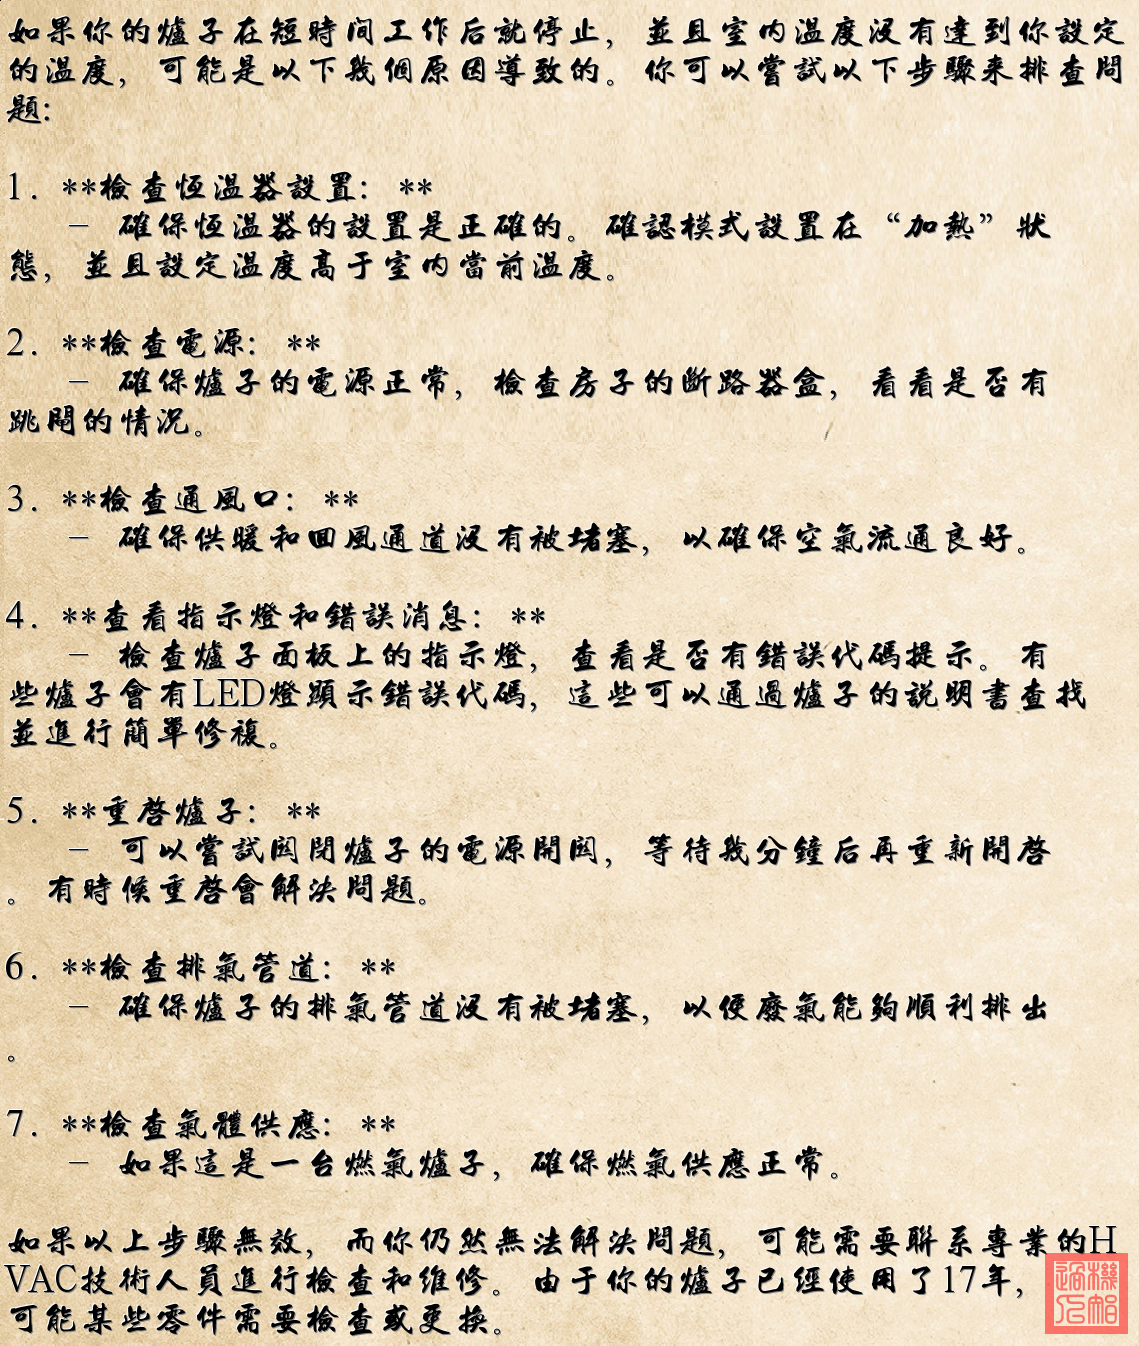 如果你的爐子在短時间工作后就停止，並且室内温度没有達到你設定
的温度，可能是以下幾個原因導致的。你可以嘗試以下步驟来排查問
題：
1. **檢查恆温器設置：**
– 確保恆温器的設置是正確的。確認模式設置在“加熱”狀
態，並且設定温度高于室内當前温度。
2. **檢查電源：**
– 確保爐子的電源正常，檢查房子的断路器盒，看看是否有
跳閘的情况。
3. **檢查通風口：**
– 確保供暖和回風通道没有被堵塞，以確保空氣流通良好。
4. **查看指示燈和錯誤消息：**
– 檢查爐子面板上的指示燈，查看是否有錯誤代碼提示。有
些爐子會有LED燈顯示錯誤代碼，這些可以通過爐子的説明書查找
並進行簡單修複。
5. **重啓爐子：**
– 可以嘗試関閉爐子的電源開関，等待幾分鐘后再重新開啓
。有時候重啓會解決問題。
6. **檢查排氣管道：**
– 確保爐子的排氣管道没有被堵塞，以便廢氣能夠順利排出
。
7. **檢查氣體供應：**
– 如果這是一台燃氣爐子，確保燃氣供應正常。
如果以上步驟無效，而你仍然無法解決問題，可能需要聯系專業的H
VAC技術人員進行檢查和維修。由于你的爐子已經使用了17年，
可能某些零件需要檢查或更换。